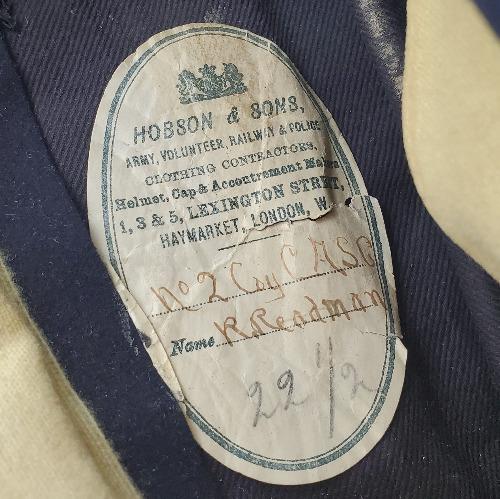 HOBSON & SONS,
ARMY, VOLUNTEER, RAILWAY & POLICE
CLOTHING CONTRACTORS,
Helmet, Cap & Accoutrement Makers
1, 3 & 5, LEXINGTON STREET,
HAYMARKET, LONDON, W.
No 2 Coy
Name R Readman
22 11/2